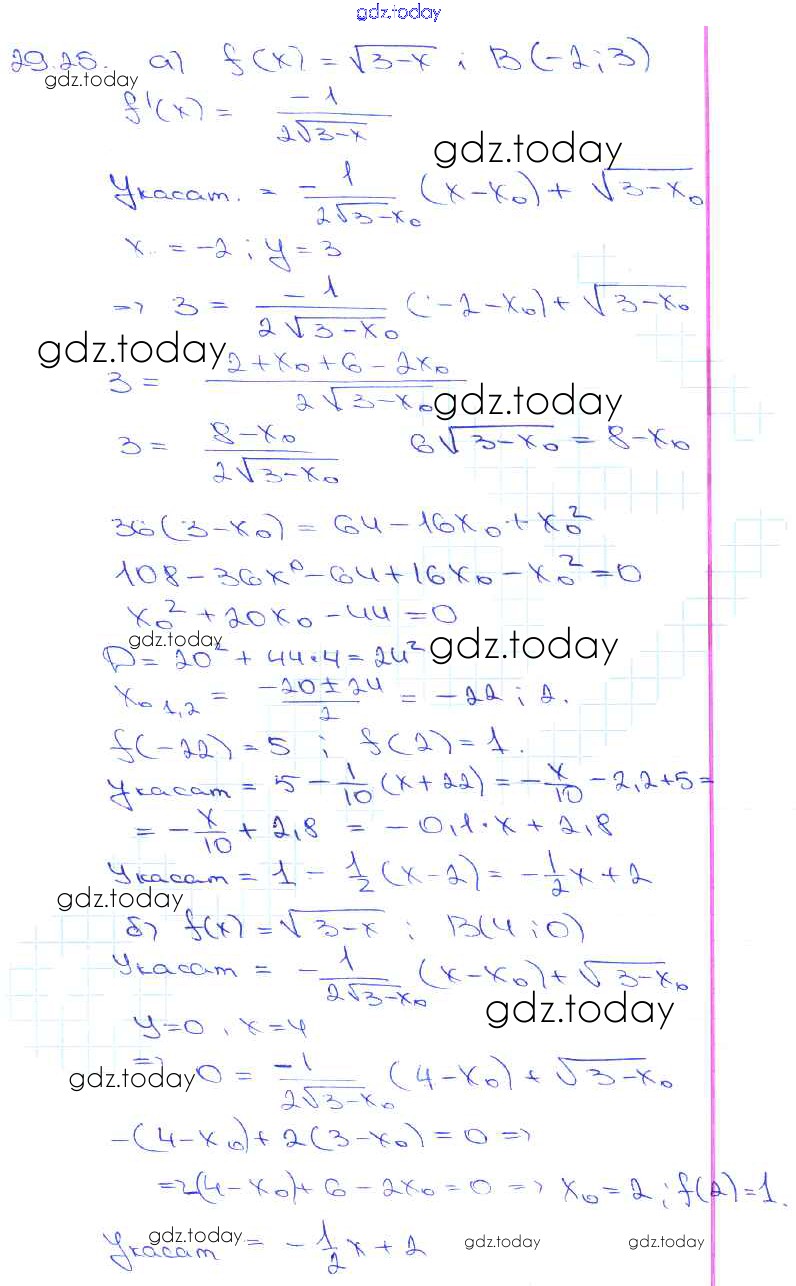 gdz.today
29.25. а) f(x) = √3-x ; B(-2;3)
gdz.today
f'(x) = -1/2√3-x
gdz.today
Yкасат. = -1/2√3-x₀ (x-x₀) + √3-x₀
x = -2 ; y = 3
=> 3 = -1/2√3-x₀ (-2-x₀) + √3-x₀
gdz.today
3 = 2+x₀+6-2x₀/2√3-x₀
gdz.today
3 = 8-x₀/2√3-x₀ 6√3-x₀ = 8-x₀
36(3-x₀) = 64-16x₀+x₀²
108-36x⁰-64+16x₀-x₀²=0
x₀²+20x₀-44=0
gdz.today
D=20²+44·4=24²
gdz.today
x₀ 1,2 = -20±24/2 = -22 ; 2.
f(-22)=5 ; f(2)=1.
Yкасат = 5 - 1/10 (x+22) = -x/10 - 2,2+5 =
= -x/10 + 2,8 = -0,1·x + 2,8
Yкасат = 1 - 1/2 (x-2) = -1/2 x + 2
gdz.today
б) f(x) = √3-x ; B(4;0)
Yкасат = -1/2√3-x₀ (x-x₀) + √3-x₀
gdz.today
y=0, x=4
=> 0 = -1/2√3-x₀ (4-x₀) + √3-x₀
gdz.today
-(4-x₀)+2(3-x₀)=0 =>
=> -(4-x₀)+6-2x₀=0 => x₀=2 ; f(2)=1.
Yкасат = -1/2 x + 2
gdz.today
gdz.today
gdz.today